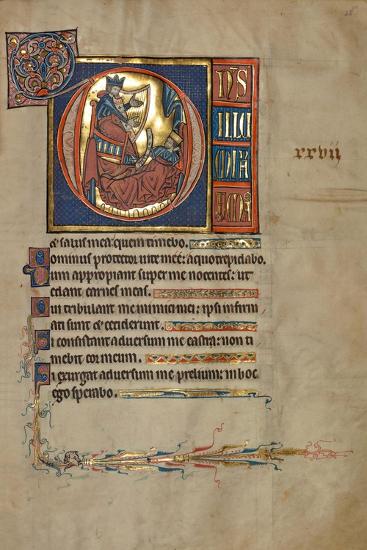 D
NS
ILLU
MINA
xxvii
& salus mea: quem timebo.
Dominus protector vite mee: a quo trepidabo.
Dum appropiant super me nocentes: ut
edant carnes meas.
Qui tribulant me inimici mei: ipsi infirm
ati sunt & ceciderunt.
Si consistant adversum me castra: non ti
mebit cor meum.
Si exurgat adversum me prelium: in hoc
ego sperabo.